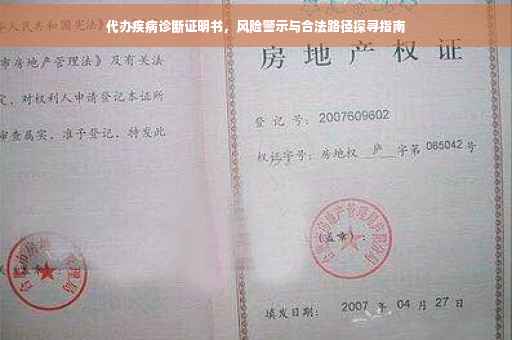 代办疾病诊断证明书，风险警示与合法路径探寻指南
人民共和国宪法》
市房地产管理法》及有关法
定，对权利人申请登记本证所
审查属实，准予登记，特发此
房地产权证
登记号：2007609602
权证字号：房地权 庐 字第 085042 号
（盖章）：
填发日期： 2007 年 04 月 27 日